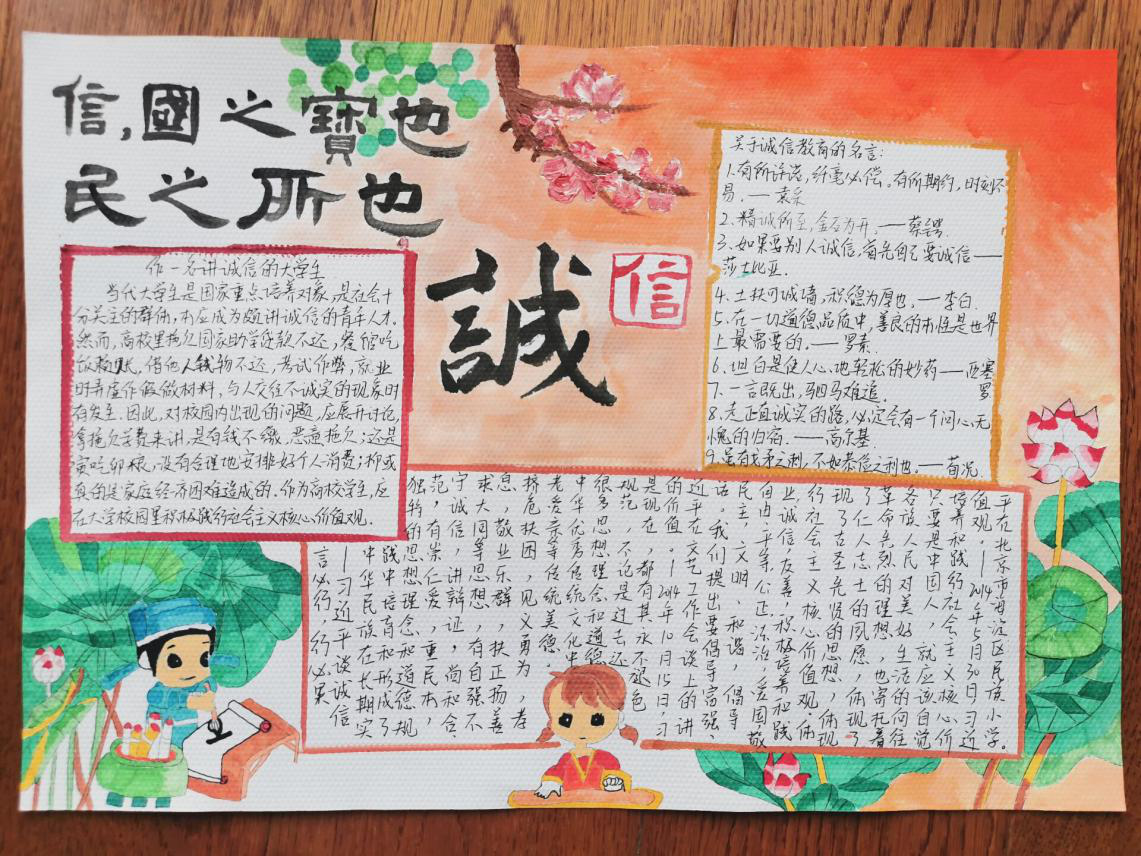 信,國之寶也
民之所也
誠
信
作一名讲诚信的大学生
当代大学生是国家重点培养对象,是社会十
分关注的群体,本应成为颇讲诚信的青年人才.
然而,高校里拖欠国家助学贷款不还,餐馆吃
饭赖账,借他人钱物不还,考试作弊,就业
时弄虚作假做材料,与人交往不诚实的现象时
有发生.因此,对校园内出现的问题,应展开讨论,
拿拖欠学费来讲,是有钱不缴,恶意拖欠;还是
寅吃卯粮,没有合理地安排好个人消费;抑或
真的是家庭经济困难造成的.作为高校学生,应
在大学校园里积极践行社会主义核心价值观.
关于诚信教育的名言:
1.有所许诺,纤毫必偿。有所期约,时刻不
易.——袁采
2.精诚所至,金石为开.——蔡锷
3.如果要别人诚信,首先自己要诚信——
莎士比亚.
4.土扶可诚墙,积德为厚也,——李白.
5.在一切道德品质中,善良的本性是世界
上最需要的.——罗素.
6.坦白是使人心地轻松的妙药——西塞
罗
7.一言既出,驷马难追.
8.走正直诚实的路,必定会有一个问心无
愧的归宿.——高尔基.
9.虽有戈矛之刺,不如恭俭之利也.——荀况.
言必行,行必果
—习近平谈诚信
中华民族在长期实
践中培育和形成了
独特的思想理念和道德规
范,有崇仁爱、重民本,
守诚信,讲辩证,尚和合、
求大同等思想,有自强不
息,敬业乐群,扶正扬善
挤危扶困,见义勇为,孝
老爱亲等传统美德.
中华优秀传统文化中
很多思想理念和道德
规范,不论是过去还
是现在,都有其永不褪色
的价值.—2014年10月15日,习
近平在文艺工作会谈上的讲
话。我们提出要倡导富强、
民主、文明、和谐,倡导
自由、平等、公正、法治,爱国敬
业,诚信,友善,积极培养和践
行社会主义核心价值观,体
现了古圣先贤的思想,体现
了仁人志士的夙愿,体现了
革命先烈的理想,也寄托着
各族人民对美好生活的向往
只要是中国人,就应该自觉
境养和践行社会主义核心价
值观.—2014年5月30日习近
平在北京市海淀区民族小学。